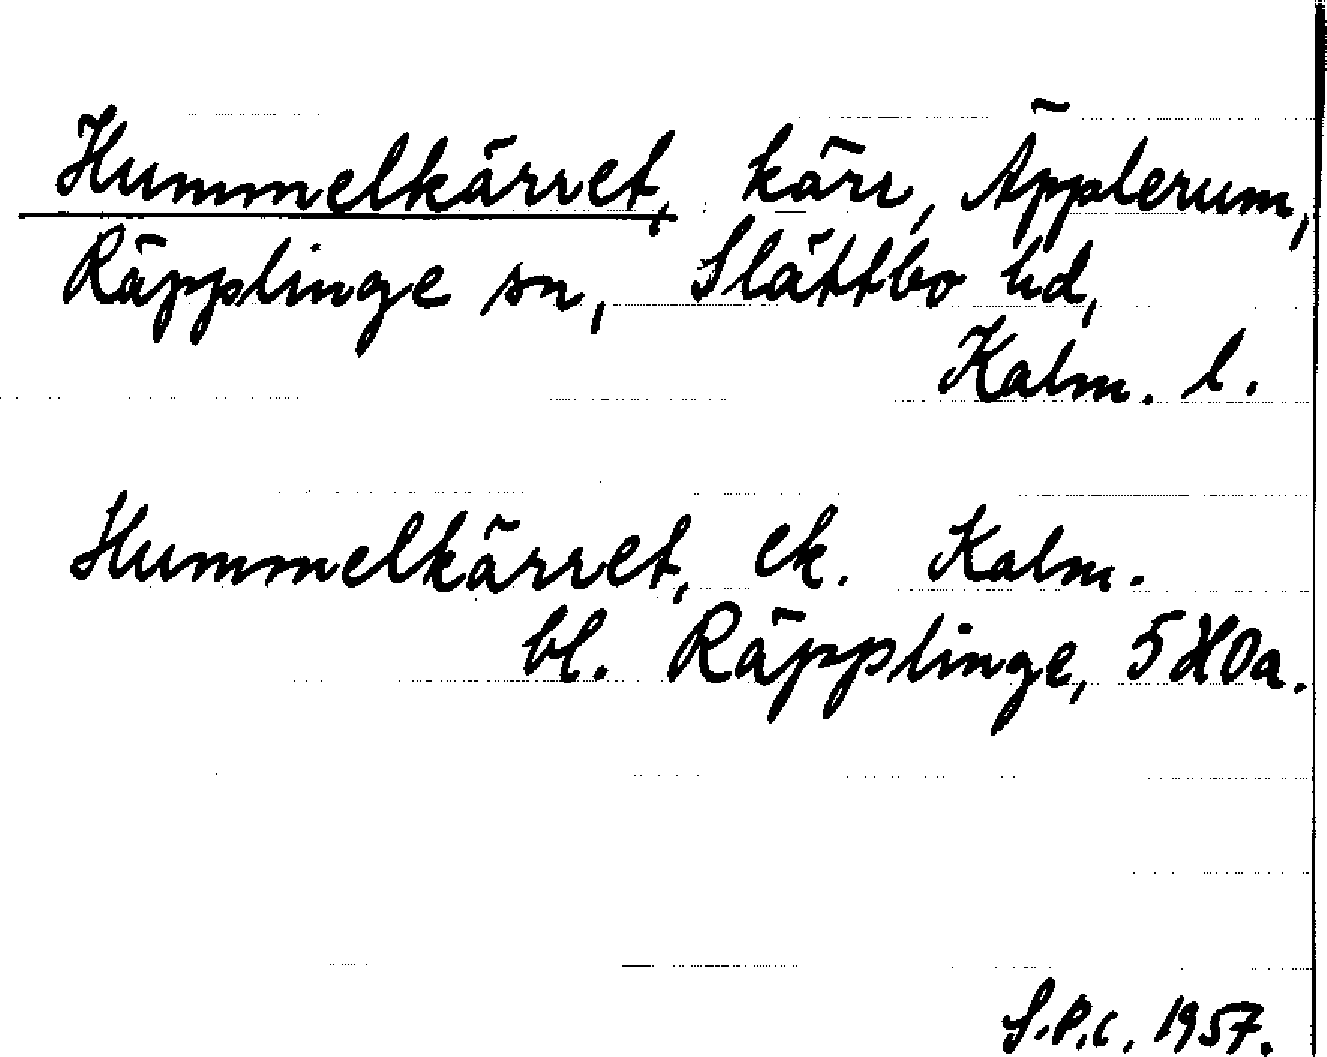 Hummelkärret, kärr, Äpplerum,
Räpplinge sn, Slättbo hd,
Kalm. l.
Hummelkärret, ek. Kalm.
bl. Räpplinge, 5H0a.
S.P.C. 1957.